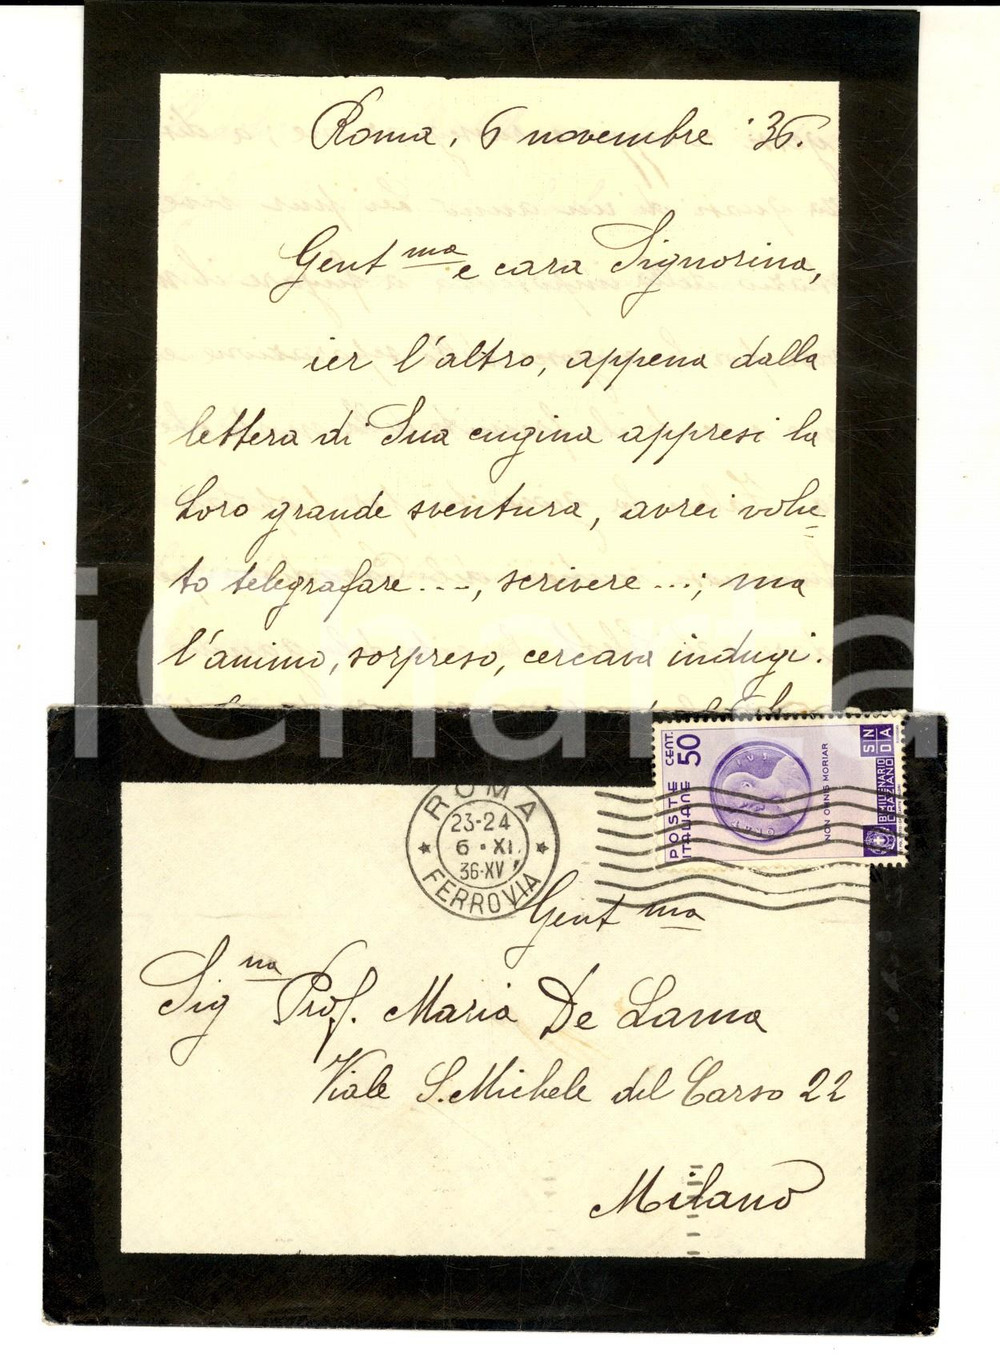 Roma, 6 novembre '36.
Gent ma e cara Signorina,
ier l'altro, appena dalla
lettera di Sua cugina appresi la
Loro grande sventura, avrei volu=
to telegrafare...., scrivere...; ma
l'animo, sorpreso, cercava indugi.
iCharta
POSTE ITALIANE
CENT. 50
NON OMNIS MORIAR
BIMILLENARIO ORAZIANO
ROMA
23-24
6·XI.
36·XV
FERROVIA
Gent ma
Sig na Prof. Maria De Lama
Viale S. Michele del Carso 22
Milano